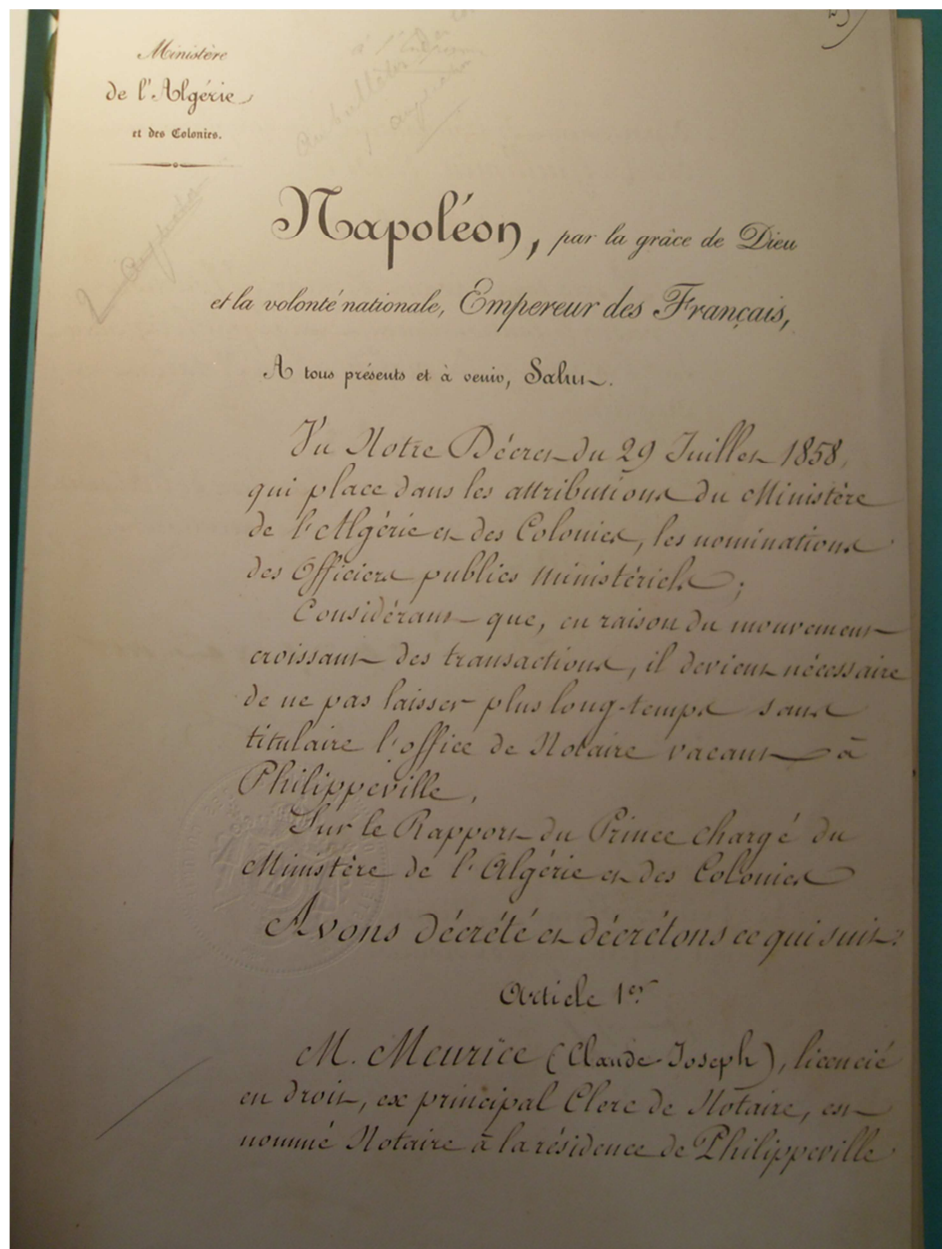 Ministère
de l'Algérie
et des Colonies.
Napoléon, par la grâce de Dieu
et la volonté nationale, Empereur des Français,
A tous présents et à venir, Salut.
Vu Notre Décret du 29 Juillet 1858,
qui place dans les attributions du Ministère
de l'Algérie et des Colonies, les nominations
des Officiers publics ministériels ;
Considérant que, en raison du mouvement
croissant des transactions, il devient nécessaire
de ne pas laisser plus long-temps sans
titulaire l'office de Notaire vacant à
Philippeville,
Sur le Rapport du Prince chargé du
Ministère de l'Algérie et des Colonies
Avons décrété et décrétons ce qui suit :
Article 1er
M. Meurice (Claude Joseph), licencié
en droit, ex principal Clerc de Notaire, est
nommé Notaire à la résidence de Philippeville